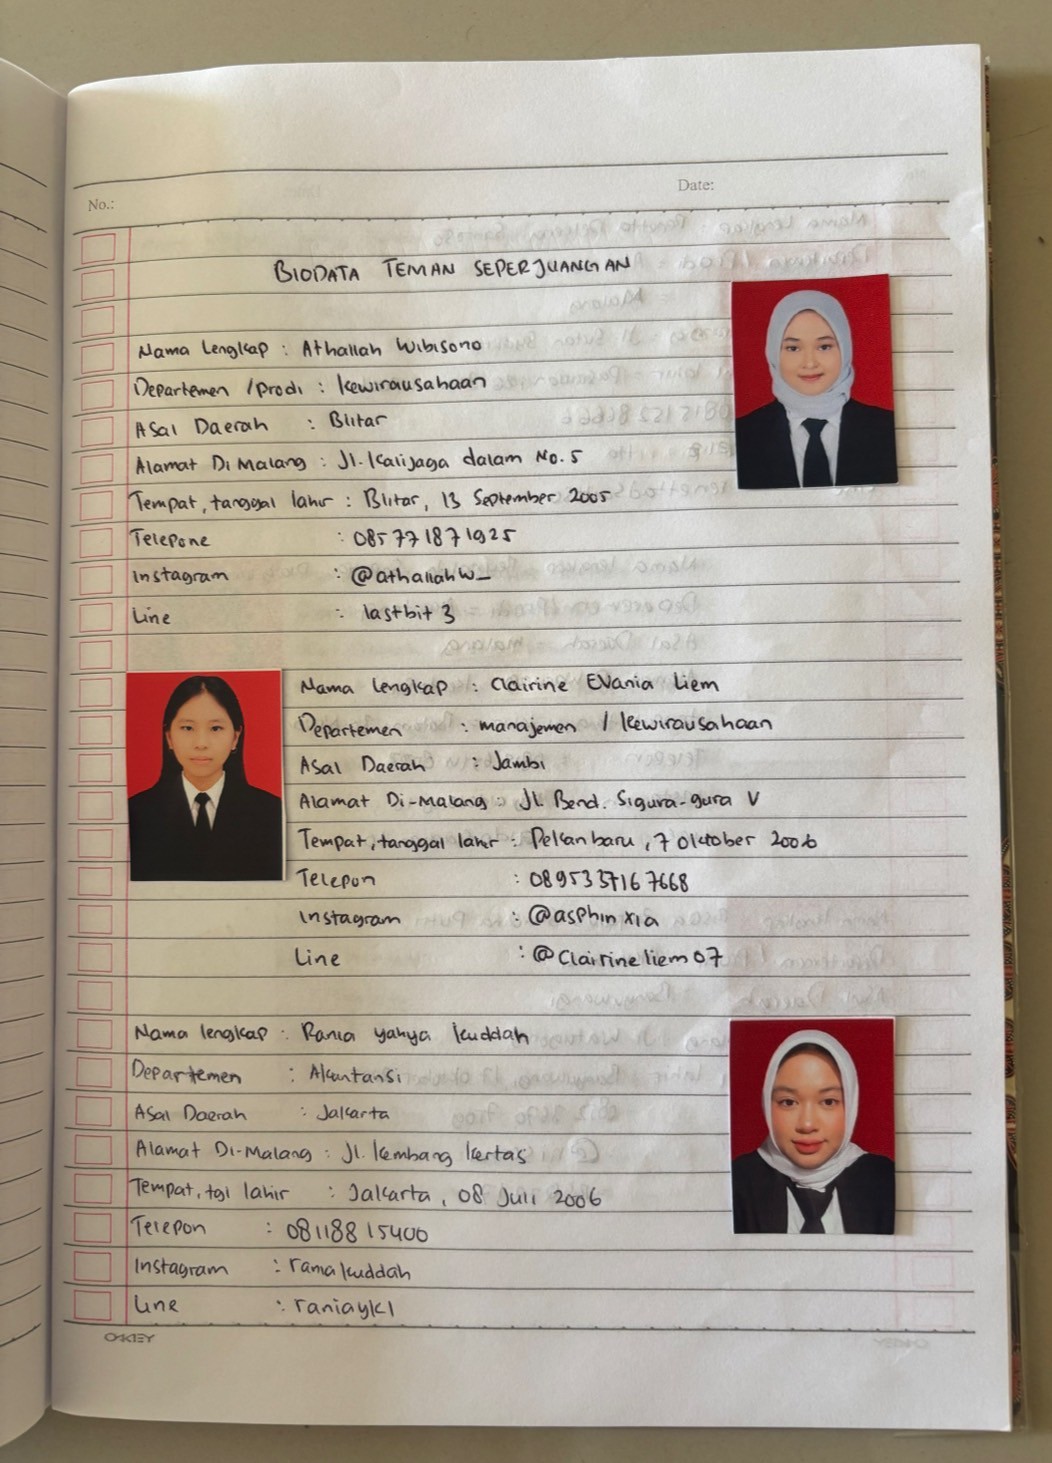 No.:
Date:
BIODATA TEMAN SEPERJUANGAN
Nama Lengkap : Athallah Wibisono
Departemen /Prodi : Kewirausahaan
Asal Daerah : Blitar
Alamat Di Malang : Jl. Kalijaga dalam No. 5
Tempat, tanggal lahir : Blitar, 13 September 2005
Telepone : 085771871925
Instagram : @athallahw_
Line : lastbit3
Nama Lengkap : Clairine EVania Liem
Departemen : manajemen / Kewirausahaan
Asal Daerah : Jambi
Alamat Di-Malang : Jl. Bend. Sigura-gura V
Tempat, tanggal lahir : Pekanbaru, 7 Oktober 2006
Telepon : 0895337167668
Instagram : @asphinxia
Line : @Clairineliem07
Nama lengkap : Rania yahya kuddah
Departemen : Akuntansi
Asal Daerah : Jakarta
Alamat Di-Malang : Jl. Kembang kertas
Tempat, tgl lahir : Jakarta, 08 Juli 2006
Telepon : 08118815400
Instagram : raniakuddah
Line : raniayk1
OKEY